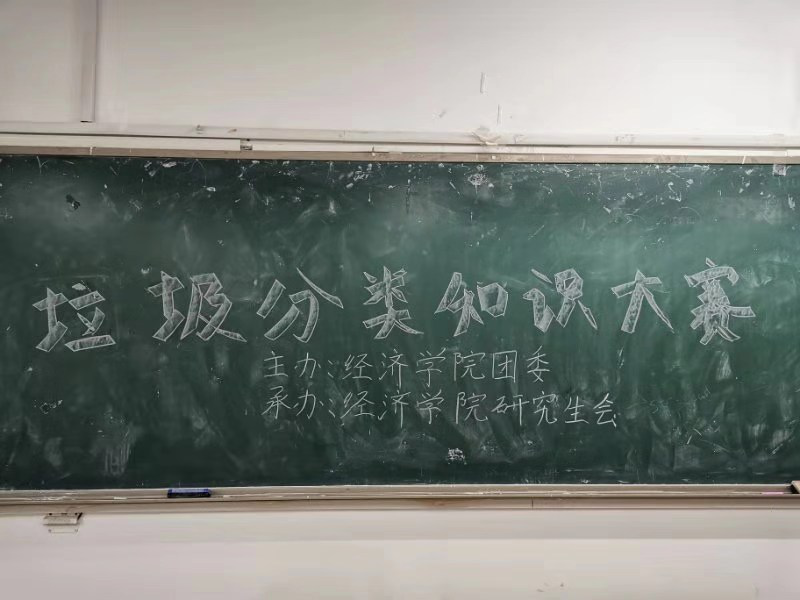 垃圾分类知识大赛
主办:经济学院团委
承办:经济学院研究生会